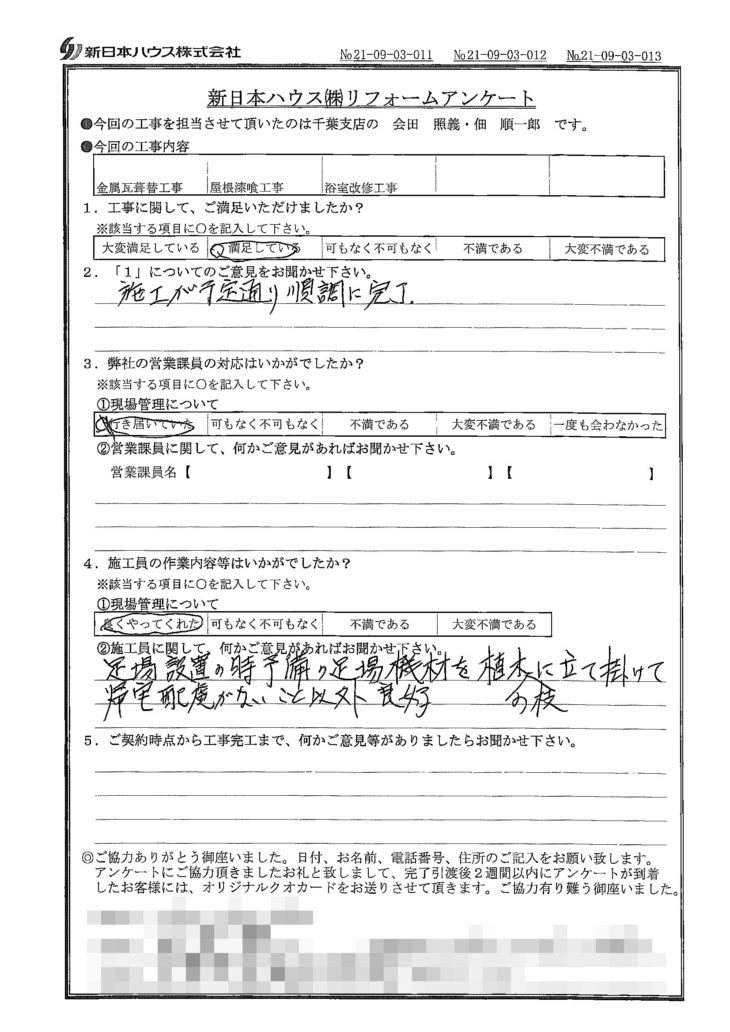 新日本ハウス株式会社
№21-09-03-011 №21-09-03-012 №21-09-03-013
新日本ハウス㈱リフォームアンケート
●今回の工事を担当させて頂いたのは千葉支店の 会田 照義・佃 順一郎 です。
●今回の工事内容
金属瓦葺替工事 屋根漆喰工事 浴室改修工事
1．工事に関して、ご満足いただけましたか？
※該当する項目に○を記入して下さい。
大変満足している 満足している 可もなく不可もなく 不満である 大変不満である
2．「1」についてのご意見をお聞かせ下さい。
施工が予定通り順調に完了
3．弊社の営業課員の対応はいかがでしたか？
※該当する項目に○を記入して下さい。
①現場管理について
行き届いていた 可もなく不可もなく 不満である 大変不満である 一度も会わなかった
②営業課員に関して、何かご意見があればお聞かせ下さい。
営業課員名【 】【 】【 】
4．施工員の作業内容等はいかがでしたか？
※該当する項目に○を記入して下さい。
①現場管理について
良くやってくれた 可もなく不可もなく 不満である 大変不満である
②施工員に関して、何かご意見があればお聞かせ下さい。
足場設置の時予備の足場機材を植木に立て掛けて
帰宅配慮がないこと以外良好 の枝
5．ご契約時点から工事完工まで、何かご意見等がありましたらお聞かせ下さい。
◎ご協力ありがとう御座いました。日付、お名前、電話番号、住所のご記入をお願い致します。
アンケートにご協力頂きましたお礼と致しまして、完了引渡後2週間以内にアンケートが到着
したお客様には、オリジナルクオカードをお送りさせて頂きます。ご協力有り難う御座いました。